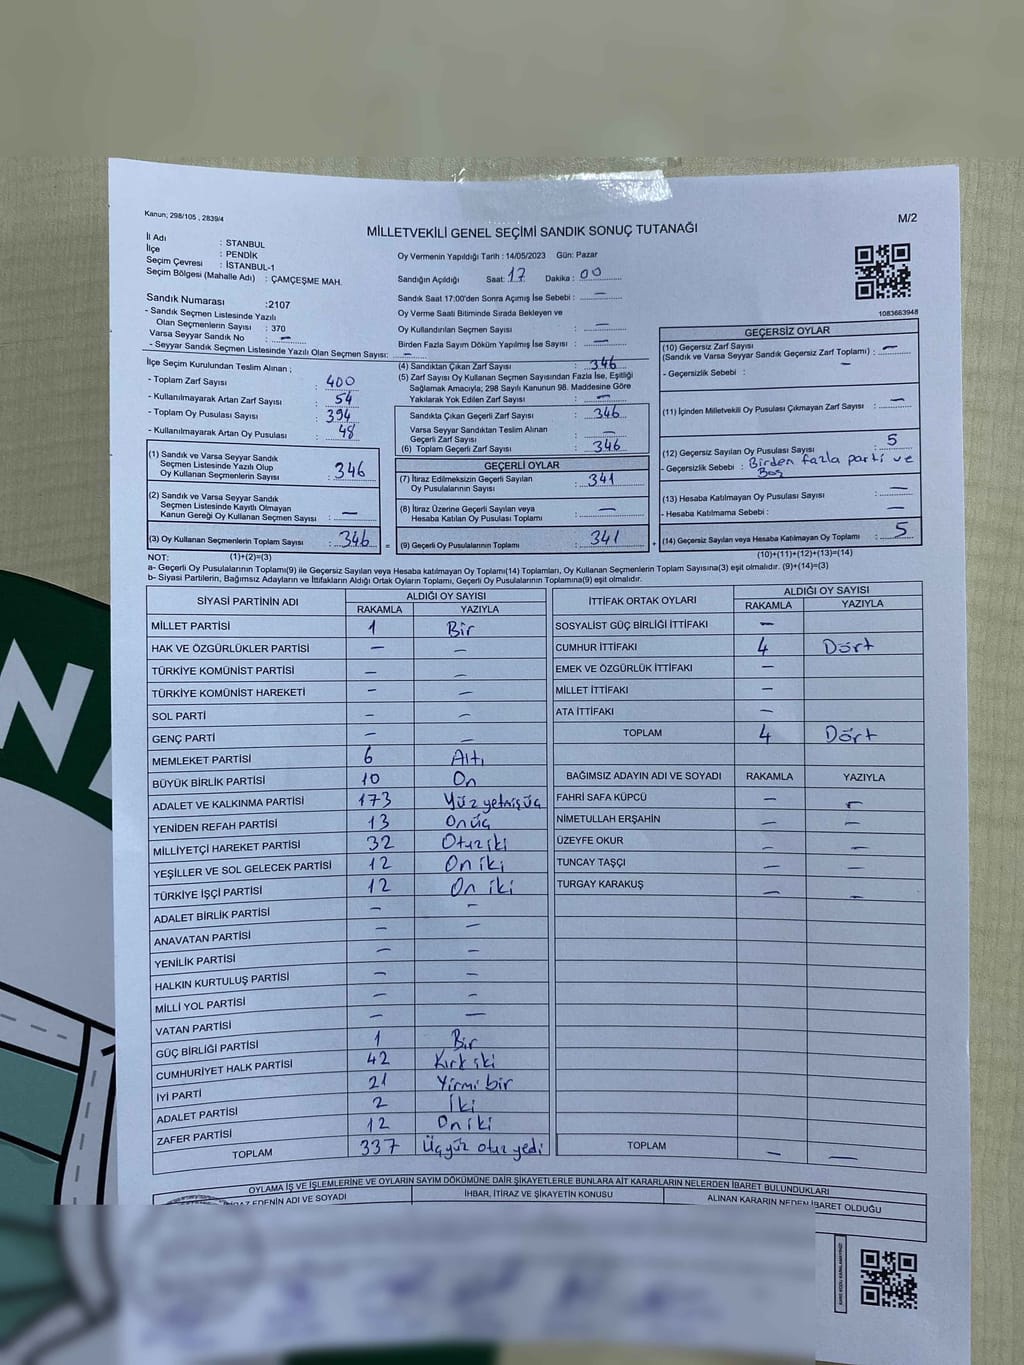 Kanun; 298/105 , 2839/4
M/2
MİLLETVEKİLİ GENEL SEÇİMİ SANDIK SONUÇ TUTANAĞI
İl Adı : STANBUL
İlçe : PENDİK
Seçim Çevresi : İSTANBUL-1
Seçim Bölgesi (Mahalle Adı) : ÇAMÇEŞME MAH.
Sandık Numarası :2107
- Sandık Seçmen Listesinde Yazılı
Olan Seçmenlerin Sayısı : 370
Varsa Seyyar Sandık No : —
- Seyyar Sandık Seçmen Listesinde Yazılı Olan Seçmen Sayısı: —
Oy Vermenin Yapıldığı Tarih : 14/05/2023 Gün: Pazar
Sandığın Açıldığı Saat: 17 Dakika : 00
Sandık Saat 17:00'den Sonra Açımış İse Sebebi : —
Oy Verme Saati Bitiminde Sırada Bekleyen ve
Oy Kullandırılan Seçmen Sayısı : —
Birden Fazla Sayım Döküm Yapılmış İse Sayısı : —
1083663948
İlçe Seçim Kurulundan Teslim Alınan ;
- Toplam Zarf Sayısı : 400
- Kullanılmayarak Artan Zarf Sayısı : 54
- Toplam Oy Pusulası Sayısı : 394
- Kullanılmayarak Artan Oy Pusulası : 48
(1) Sandık ve Varsa Seyyar Sandık
Seçmen Listesinde Yazılı Olup
Oy Kullanan Seçmenlerin Sayısı : 346
(2) Sandık ve Varsa Seyyar Sandık
Seçmen Listesinde Kayıtlı Olmayan
Kanun Gereği Oy Kullanan Seçmen Sayısı : —
(3) Oy Kullanan Seçmenlerin Toplam Sayısı : 346 =
(4) Sandıktan Çıkan Zarf Sayısı : 346
(5) Zarf Sayısı Oy Kullanan Seçmen Sayısından Fazla İse, Eşitliği
Sağlamak Amacıyla; 298 Sayılı Kanunun 98. Maddesine Göre
Yakılarak Yok Edilen Zarf Sayısı : —
Sandıkta Çıkan Geçerli Zarf Sayısı : 346
Varsa Seyyar Sandıktan Teslim Alınan
Geçerli Zarf Sayısı : —
(6) Toplam Geçerli Zarf Sayısı : 346
GEÇERLİ OYLAR
(7) İtiraz Edilmeksizin Geçerli Sayılan
Oy Pusulalarının Sayısı : 341
(8) İtiraz Üzerine Geçerli Sayılan veya
Hesaba Katılan Oy Pusulası Toplamı : —
(9) Geçerli Oy Pusulalarının Toplamı : 341 +
GEÇERSİZ OYLAR
(10) Geçersiz Zarf Sayısı
(Sandık ve Varsa Seyyar Sandık Geçersiz Zarf Toplamı) : —
- Geçersizlik Sebebi : —
(11) İçinden Milletvekili Oy Pusulası Çıkmayan Zarf Sayısı : —
(12) Geçersiz Sayılan Oy Pusulası Sayısı : 5
- Geçersizlik Sebebi : Birden fazla parti ve
Boş
(13) Hesaba Katılmayan Oy Pusulası Sayısı : —
- Hesaba Katılmama Sebebi : —
(14) Geçersiz Sayılan veya Hesaba Katılmayan Oy Toplamı : 5
NOT: (1)+(2)=(3) (10)+(11)+(12)+(13)=(14)
a- Geçerli Oy Pusulaları Toplamı(9) ile Geçersiz Sayılan veya Hesaba katılmayan Oy Toplamı(14) Toplamları, Oy Kullanan Seçmenlerin Toplam Sayısına(3) eşit olmalıdır. (9)+(14)=(3)
b- Siyasi Partilerin, Bağımsız Adayların ve İttifakların Aldığı Ortak Oyların Toplamı, Geçerli Oy Pusulalarının Toplamına(9) eşit olmalıdır.
SİYASİ PARTİNİN ADI ALDIĞI OY SAYISI
RAKAMLA YAZIYLA
MİLLET PARTİSİ 1 Bir
HAK VE ÖZGÜRLÜKLER PARTİSİ — —
TÜRKİYE KOMÜNİST PARTİSİ — —
TÜRKİYE KOMÜNİST HAREKETİ — —
SOL PARTİ — —
GENÇ PARTİ — —
MEMLEKET PARTİSİ 6 Altı
BÜYÜK BİRLİK PARTİSİ 10 On
ADALET VE KALKINMA PARTİSİ 173 Yüz yetmişüç
YENİDEN REFAH PARTİSİ 13 Onüç
MİLLİYETÇİ HAREKET PARTİSİ 32 Otuz iki
YEŞİLLER VE SOL GELECEK PARTİSİ 12 On iki
TÜRKİYE İŞÇİ PARTİSİ 12 On iki
ADALET BİRLİK PARTİSİ — —
ANAVATAN PARTİSİ — —
YENİLİK PARTİSİ — —
HALKIN KURTULUŞ PARTİSİ — —
MİLLİ YOL PARTİSİ — —
VATAN PARTİSİ — —
GÜÇ BİRLİĞİ PARTİSİ 1 Bir
CUMHURİYET HALK PARTİSİ 42 Kırk iki
İYİ PARTİ 21 Yirmi bir
ADALET PARTİSİ 2 İki
ZAFER PARTİSİ 12 On iki
TOPLAM 337 Üçyüz otuz yedi
İTTİFAK ORTAK OYLARI ALDIĞI OY SAYISI
RAKAMLA YAZIYLA
SOSYALİST GÜÇ BİRLİĞİ İTTİFAKI —
CUMHUR İTTİFAKI 4 Dört
EMEK VE ÖZGÜRLÜK İTTİFAKI —
MİLLET İTTİFAKI —
ATA İTTİFAKI —
TOPLAM 4 Dört
BAĞIMSIZ ADAYIN ADI VE SOYADI RAKAMLA YAZIYLA
FAHRİ SAFA KÜPCÜ — —
NİMETULLAH ERŞAHİN — —
ÜZEYFE OKUR — —
TUNCAY TAŞÇI — —
TURGAY KARAKUŞ — —
TOPLAM — —
OYLAMA İŞ VE İŞLEMLERİNE VE OYLARIN SAYIM DÖKÜMÜNE DAİR ŞİKAYETLERLE BUNLARA AİT KARARLARIN NELERDEN İBARET BULUNDUKLARI
EDENİN ADI VE SOYADI İHBAR, İTİRAZ VE ŞİKAYETİN KONUSU ALINAN KARARIN NEDEN İBARET OLDUĞU